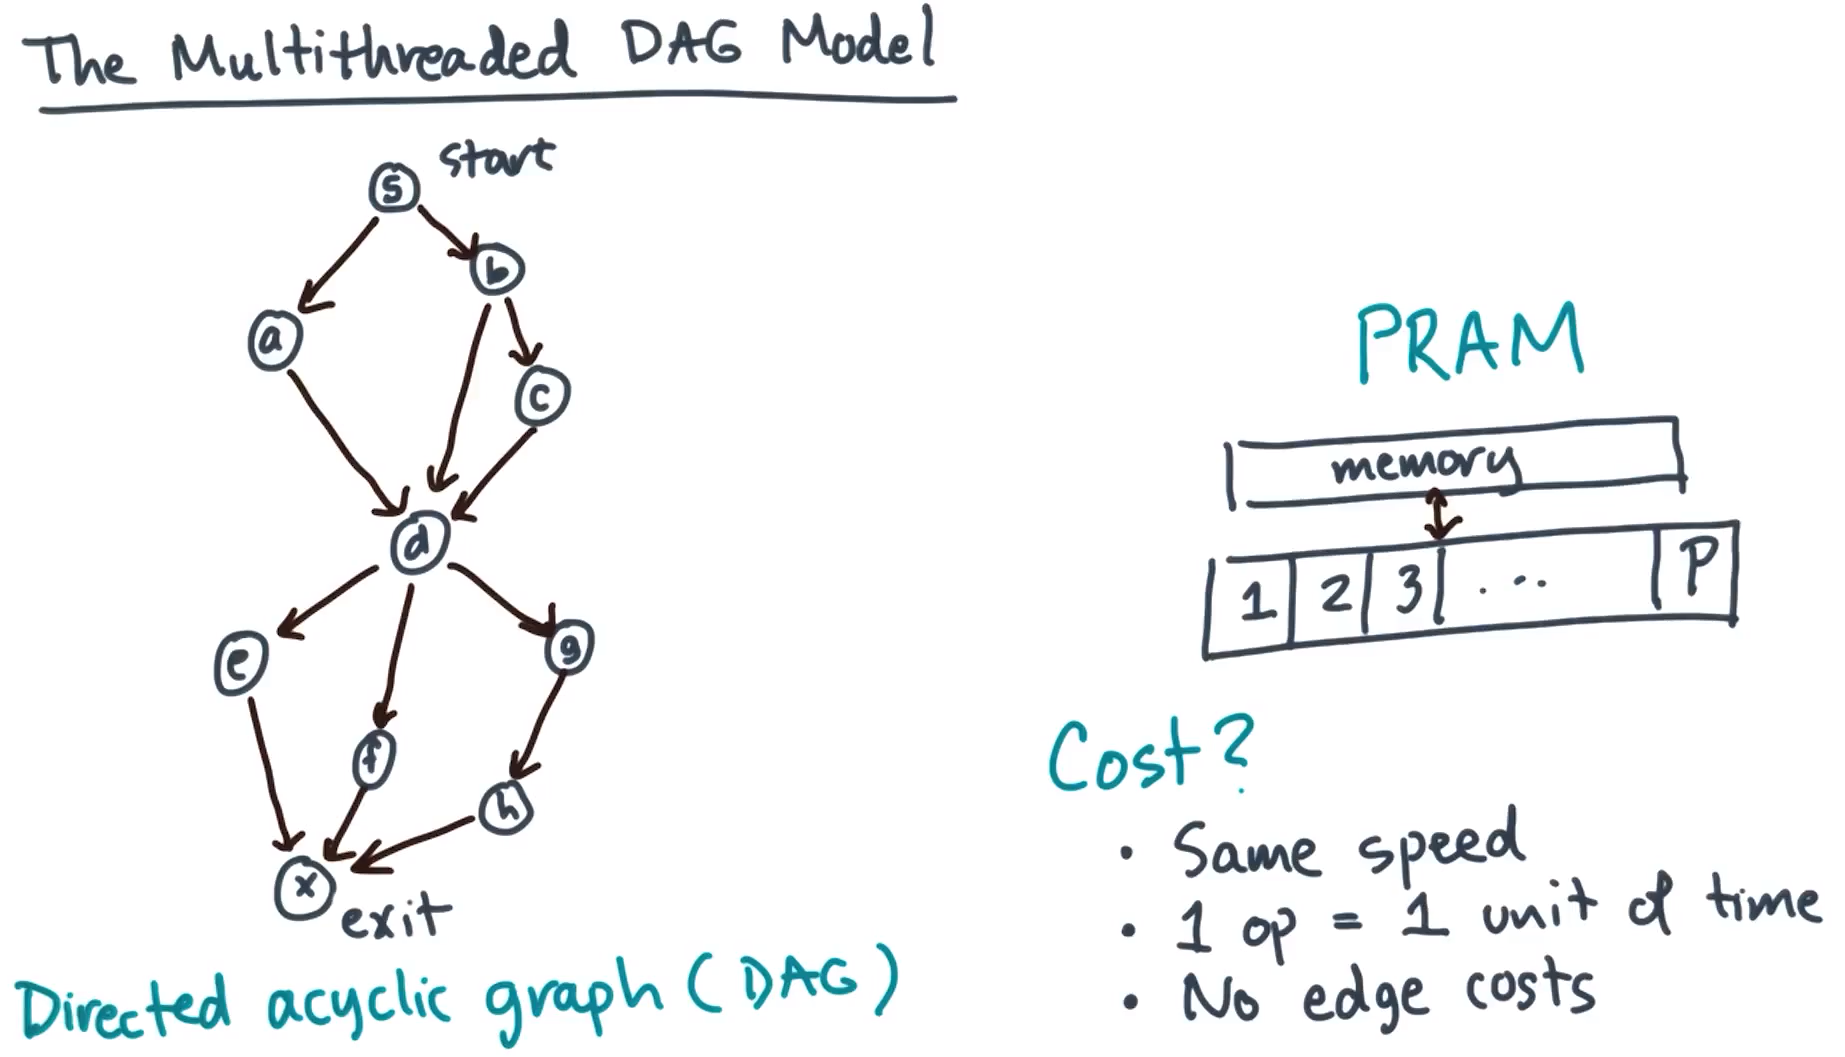 The Multithreaded DAG Model
start
s
b
a
c
d
e
g
f
h
x
exit
Directed acyclic graph (DAG)
PRAM
memory
1 2 3 ... P
Cost?
• Same speed
• 1 op = 1 unit of time
• No edge costs